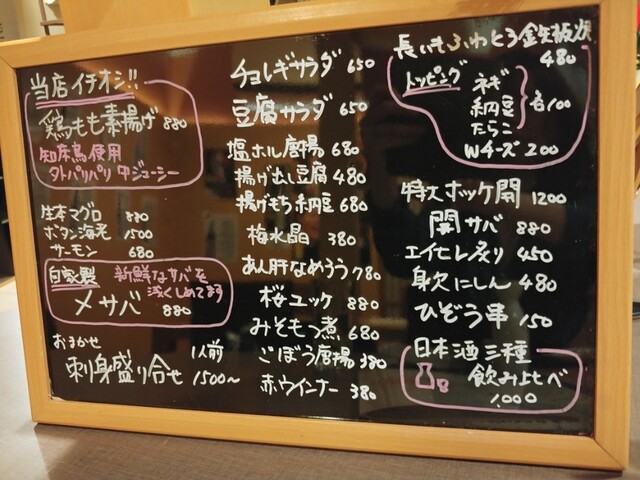 当店イチオシ!!
鶏もも素揚げ 880
知床鳥使用
外パリパリ中ジューシー
生本マグロ 880
ボタン海老 1500
サーモン 680
自家製 新鮮なサバを
浅くしめてます
〆サバ 880
おまかせ
刺身盛り合せ 1人前 1500~
チョレギサラダ 650
豆腐サラダ 650
塩ホル唐揚 680
揚げ出し豆腐 480
揚げもち納豆 680
梅水晶 380
あん肝なめろう 780
桜ユッケ 880
みそもつ煮 680
ごぼう唐揚 380
赤ウインナー 380
長いもふわとろ鉄板焼
480
トッピング
ネギ
納豆 各100
たらこ
Wチーズ 200
特大ホッケ開 1200
開サバ 880
エイヒレ炙り 450
身欠にしん 480
ひぞう串 150
日本酒三種
飲み比べ
1,000